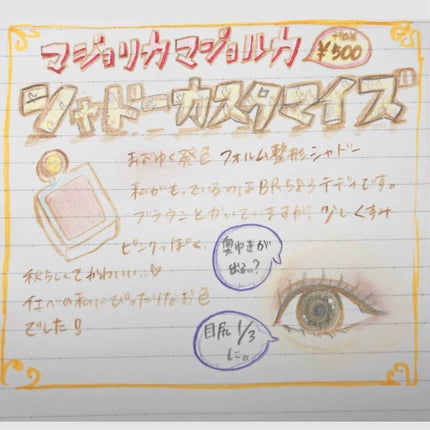 マジョリカマジョルカ
¥500
シャドーカスタマイズ
まばゆく発色 フォルム整形シャドー
私がもっているのはBR583テディです。
ブラウンとかいていますが、少しくすみ
ピンクっぽく、
秋らしくてかわいい…♡
イエベの私にぴったりなお色
でした!
奥ゆきが
出る…?
目尻1/3
に。